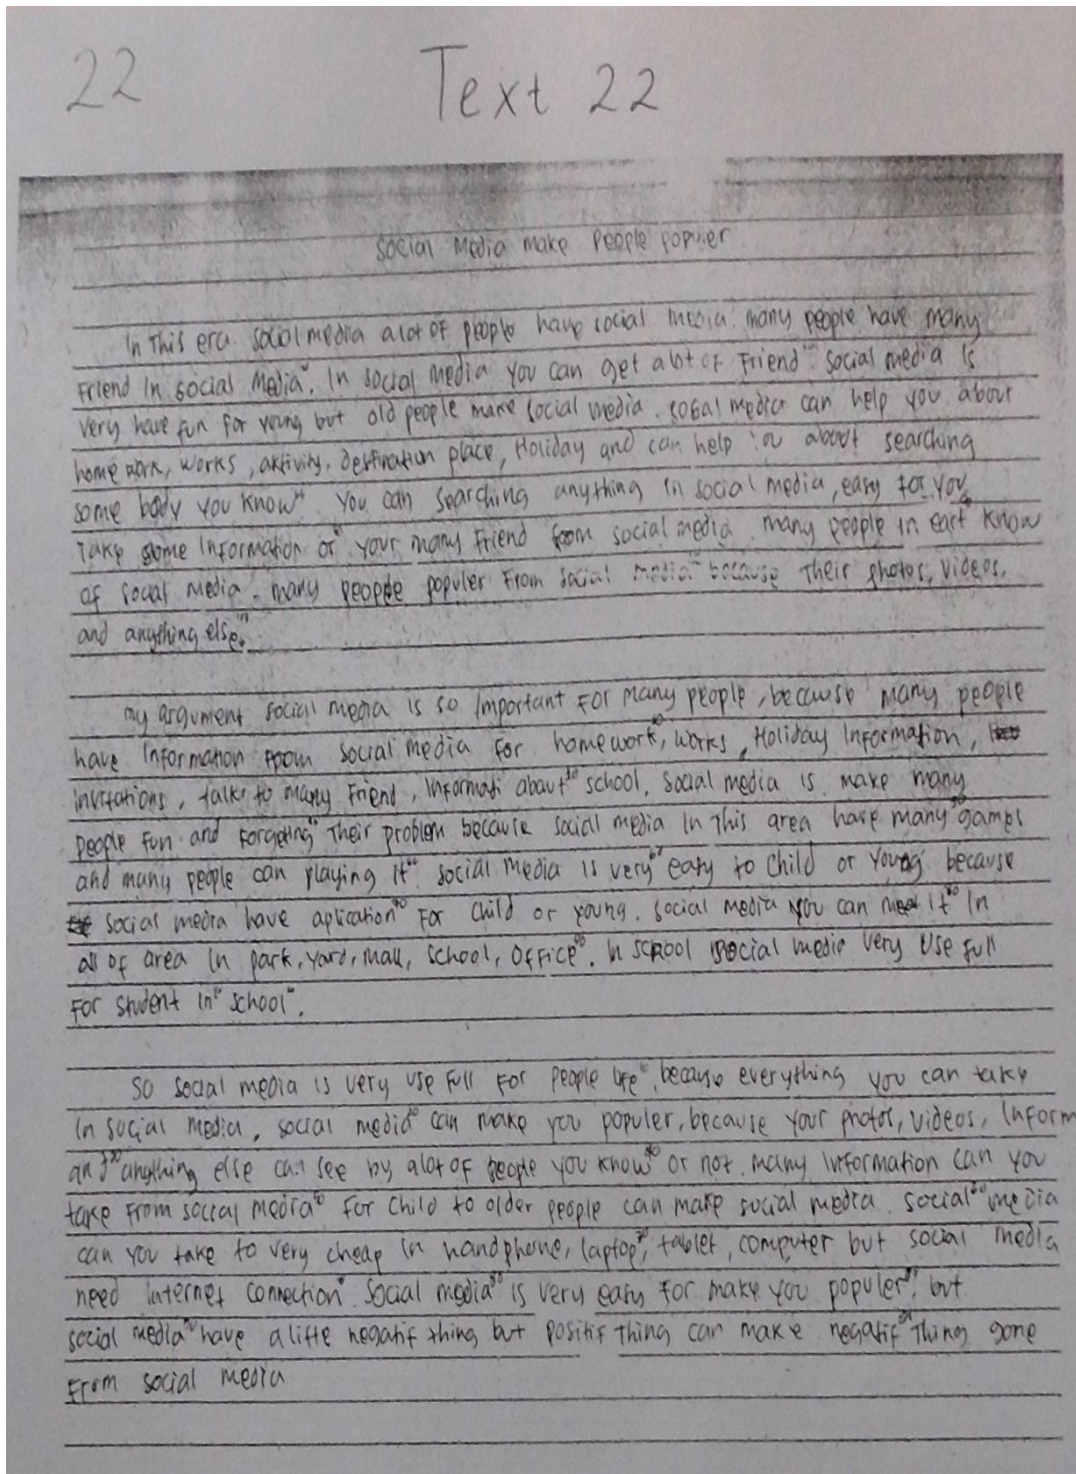 22 Text 22
Social Media make People populer
In This era. social media alot of people have social media. many people have many
Friend In social Media". In social media you can get alot of Friend" social media Is
very have fun for young but old people make social media. social media can help you about
home work, works, aktivity, destination place, Holiday and can help you about searching
some body you know" you can searching anything in social media, easy for you
Take some Information or your many Friend from social media. many people in eart know
of social media. many people populer From social media because Their photos, videos,
and anything else.
my argument social media is so Important For many people, because many people
have Information from social media for homework, works, Holiday Information,
invitations, talks to many Friend, Informati about school. Social media is make many
people fun and forgeting Their problem because social media In This area have many games
and many people can playing It social media is very easy to child or young because
social media have aplication For child or young. social media you can meet it In
all of area In park, yard, mall, school, Office. In school social media very use full
For student in school.
So social media is very use full For people life, because everything you can take
In social media. social media can make you populer, because your photos, videos, Inform
and anything else can see by alot of people you know or not. many Information can you
take From social media For child to older people can make social media. social media
can you take to very cheap In handphone, laptop, tablet, computer but social media
need internet connection. Social media is very easy For make you populer, but
social media have a litte negatif thing but positif Thing can make negatif Thing gone
From social media